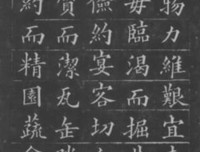 物力維艱宜
毋臨渴而掘井
儉約宴客切
質而潔瓦缶
約而精園蔬